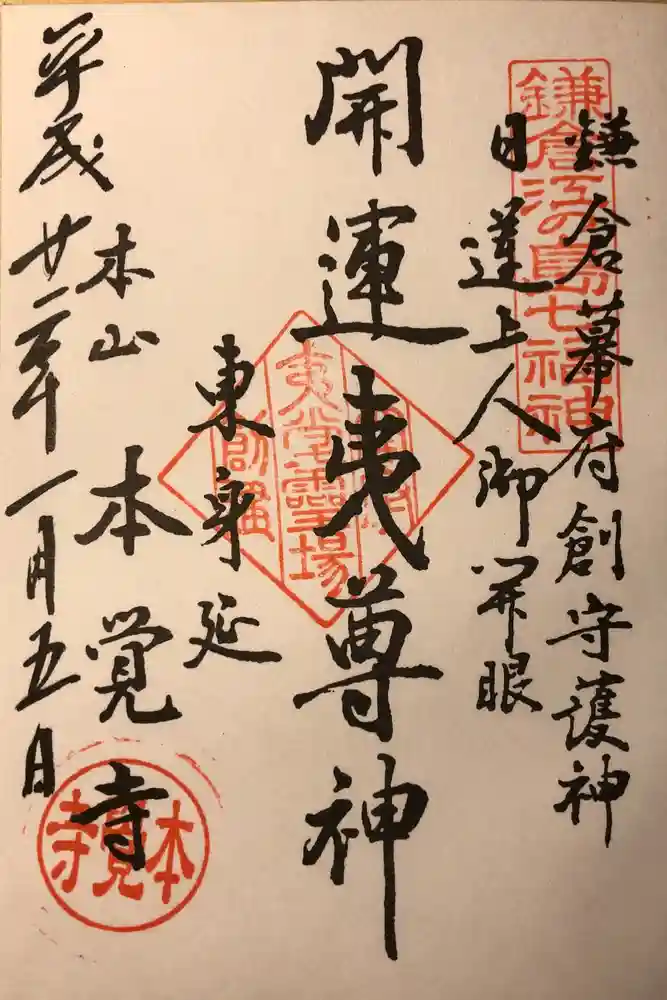 鎌倉江の島七福神
鎌倉幕府創守護神
日蓮上人御開眼
開運夷尊神
夷堂霊場
東身延
本山 本覚寺
平成廿二年一月五日
本覚寺